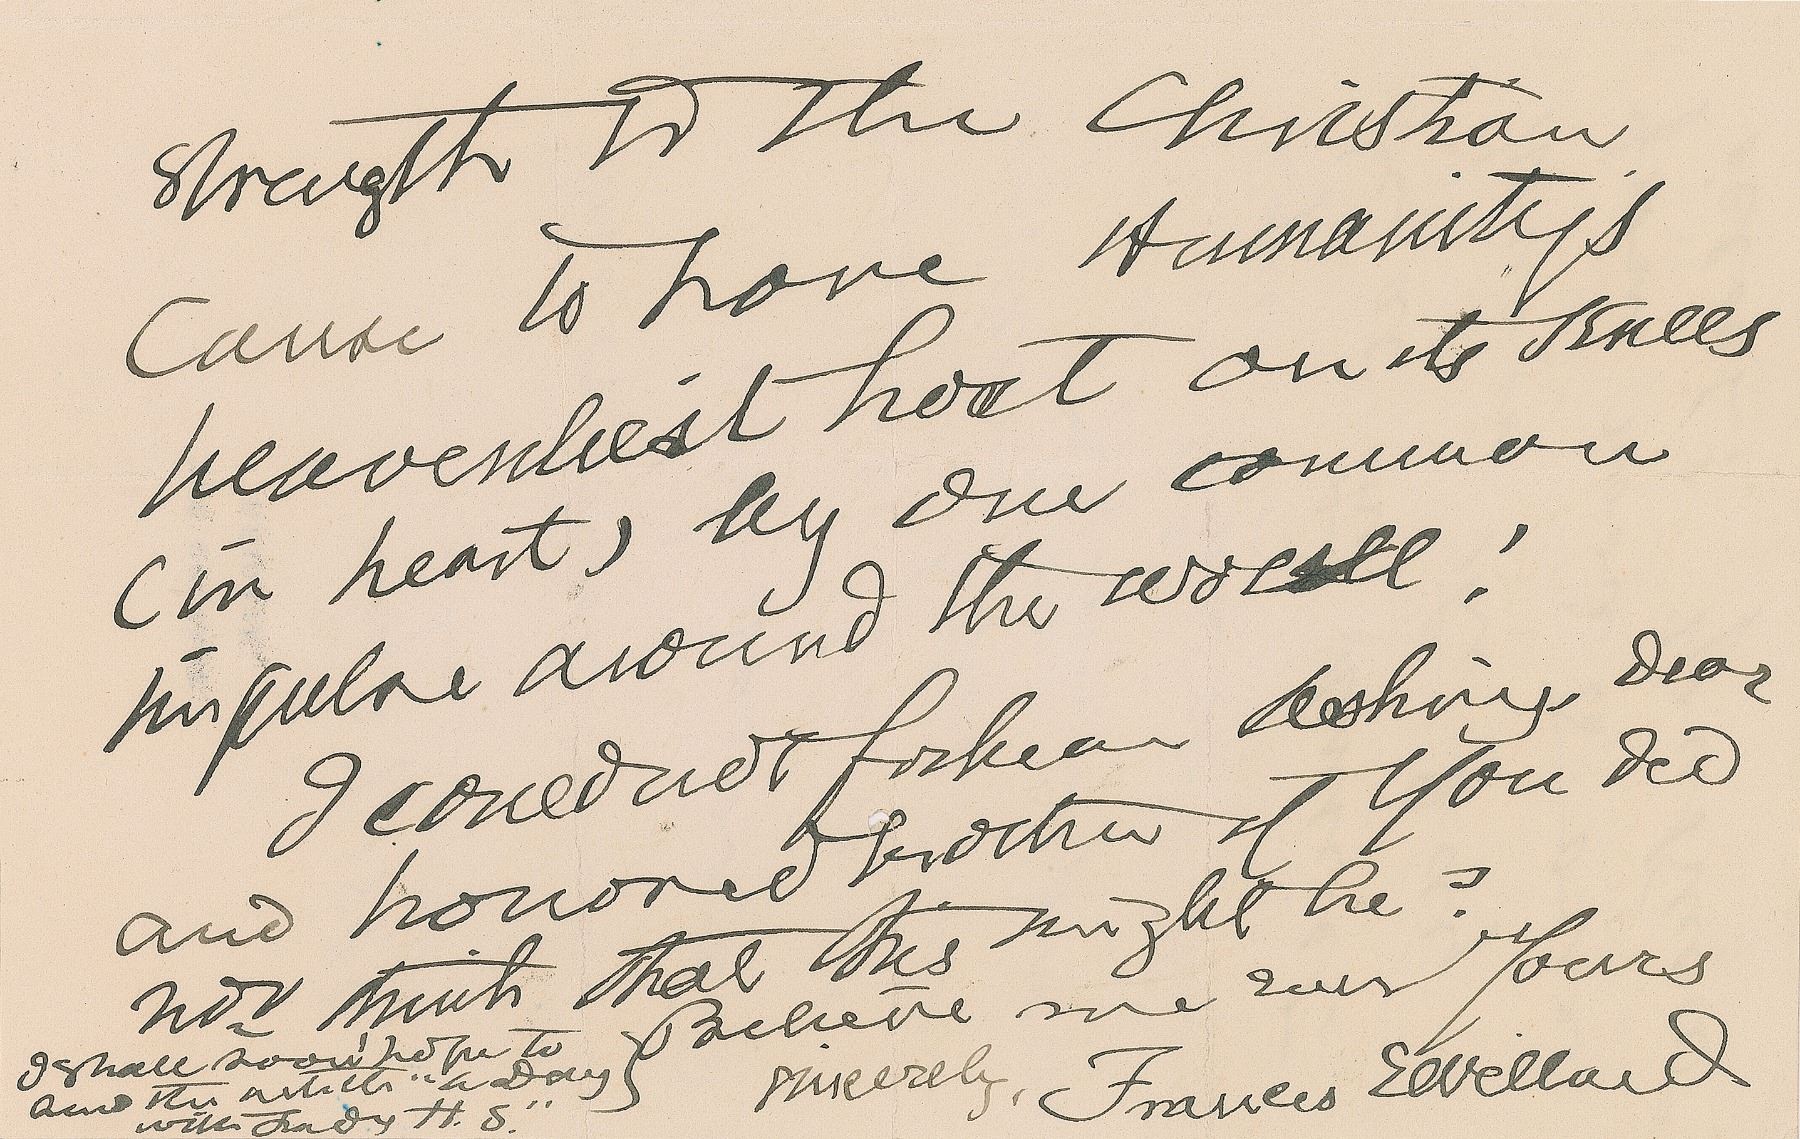 strength to the Christian
Cause to have Humanity's
heavenliest host on its Knees
(in heart) by one common
impulse around the world!
I could not forbear asking dear
and honored brother if you did
not think that this might be?
Believe me ever Yours
sincerely, Frances E Willard
I shall soon hope to
send the article "a Day
with Lady H. S."